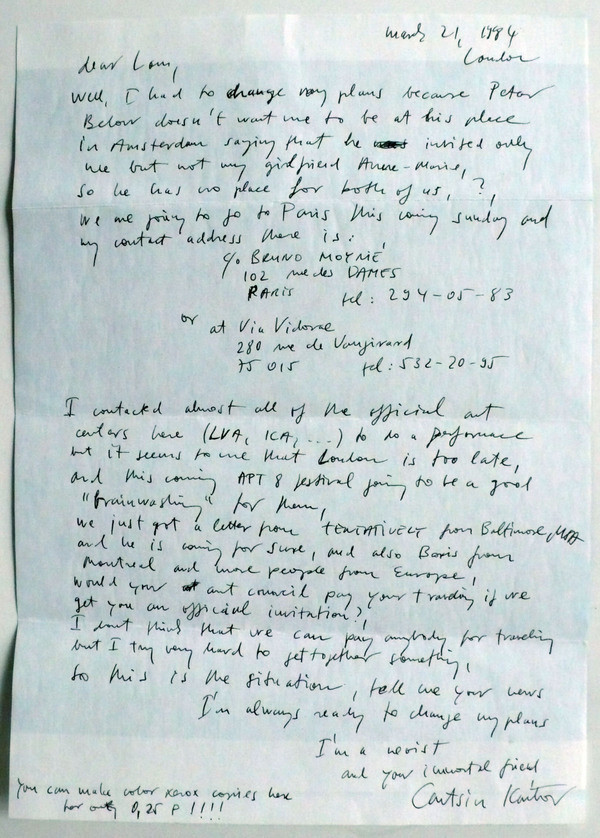 march 21, 1984
London
dear Lon,
Well, I had to change my plans because Peter
Below doesn't want me to be at his place
in Amsterdam saying that he invited only
me but not my girlfriend Anne-Marie,
so he has no place for both of us, ?,
we are going to go to Paris this coming sunday and
my contact address there is:
c/o BRUNO MOYNIE
102 rue des DAMES
PARIS tel: 294-05-83
or at Via Vidorae
280 rue de Vaugirard
75 015 tel: 532-20-95
I contacted almost all of the official art
centers here (LVA, ICA, ...) to do a performance
but it seems to me that London is too late,
and this coming APT 8 festival going to be a good
"brainwashing" for them,
we just got a letter from TENTATIVELY from Baltimore, USA
and he is coming for sure, and also Boris from
Montreal and more people from Europe,
would your art council pay your traveling if we
get you an official invitation?,
I dont think that we can pay anybody for traveling
but I try very hard to get together something,
so this is the situation, tell me your news
I'm always ready to change my plans
I'm a neoist
and your immortal friend
Cantsin Kantor
you can make color xerox copies here
for only 0,25 P !!!!